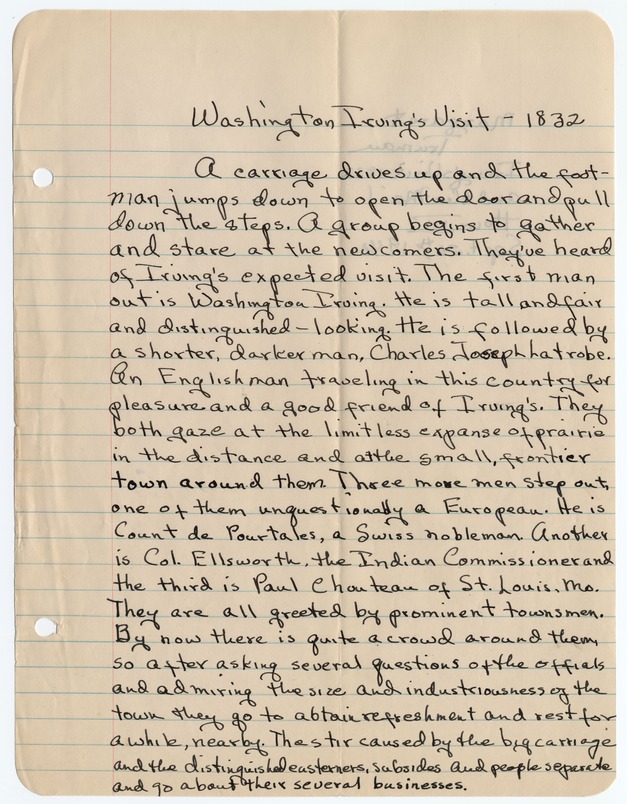 Washington Irving's Visit - 1832
A carriage drives up and the foot-
man jumps down to open the door and pull
down the steps. A group begins to gather
and stare at the newcomers. They've heard
of Irving's expected visit. The first man
out is Washington Irving. He is tall and fair
and distinguished-looking. He is followed by
a shorter, darker man, Charles Joseph Latrobe.
An Englishman traveling in this country for
pleasure and a good friend of Irving's. They
both gaze at the limitless expanse of prairie
in the distance and at the small, frontier
town around them. Three more men step out,
one of them unquestionably a European. He is
Count de Pourtales, a Swiss nobleman. Another
is Col. Ellsworth, the Indian Commissioner and
the third is Paul Chouteau of St. Louis, Mo.
They are all greeted by prominent townsmen.
By now there is quite a crowd around them,
so after asking several questions of the offials
and admiring the size and industriousness of the
town they go to obtain refreshment and rest for
a while, nearby. The stir caused by the big carriage
and the distinguished easterners, subsides and people separate
and go about their several businesses.